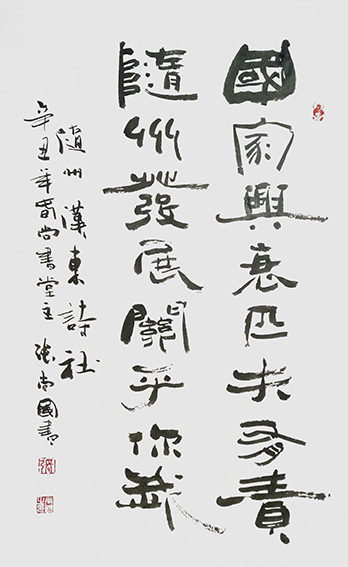 國家興衰匹夫有責
隨州發展關乎你我
隨州漢東詩社
辛丑年春尚書堂主張尚國書